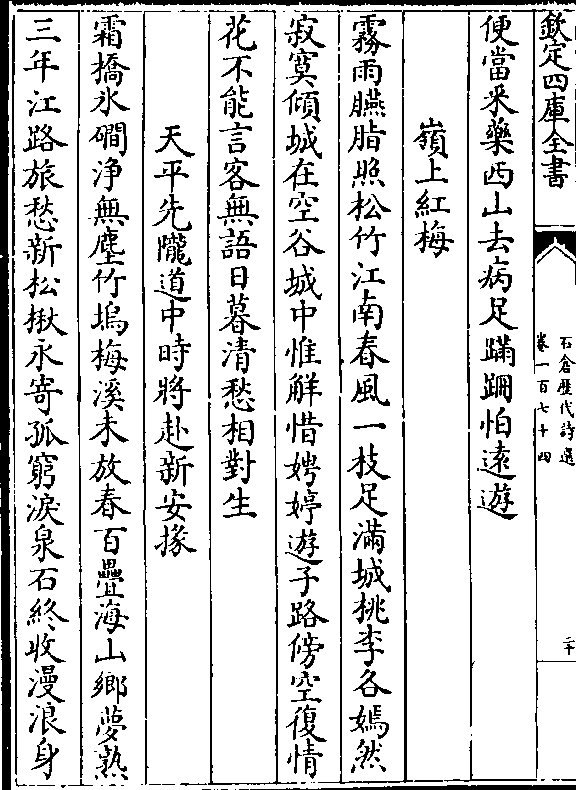 欽定四庫全書
石倉歴代詩選
卷一百七十四
二十
便當采藥西山去病足蹣跚怕逺遊
嶺上紅梅
霧雨臙脂照松竹江南春風一枝足滿城桃李各嫣然
寂寞傾城在空谷城中惟解惜娉婷遊子路傍空復情
花不能言客無語日暮清愁相對生
天平先隴道中時將赴新安掾
霜橋氷磵浄無塵竹塢梅溪未放春百疊海山鄉夢熟
三年江路旅愁新松楸永寄孤窮淚泉石終收漫浪身